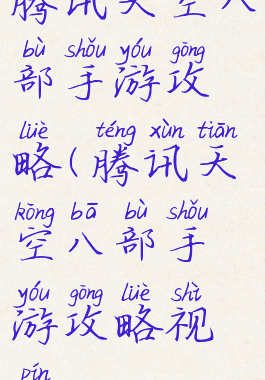 腾讯天空八
bù shǒu yóu gōng
部手游攻
lüè téng xùn tiān
略(腾讯天
kōng bā bù shǒu
空八部手
yóu gōng lüè shì
游攻略视
pín